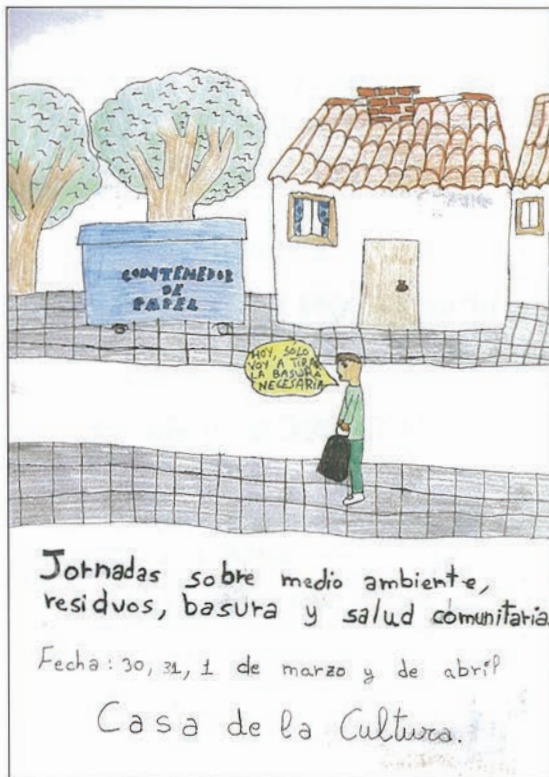 CONTENEDOR
DE
PAPEL
HOY, SOLO
VOY A TIRAR
LA BASURA
NECESARIA
Jornadas sobre medio ambiente,
residuos, basura y salud comunitaria
Fecha: 30, 31, 1 de marzo y de abril
Casa de la Cultura.